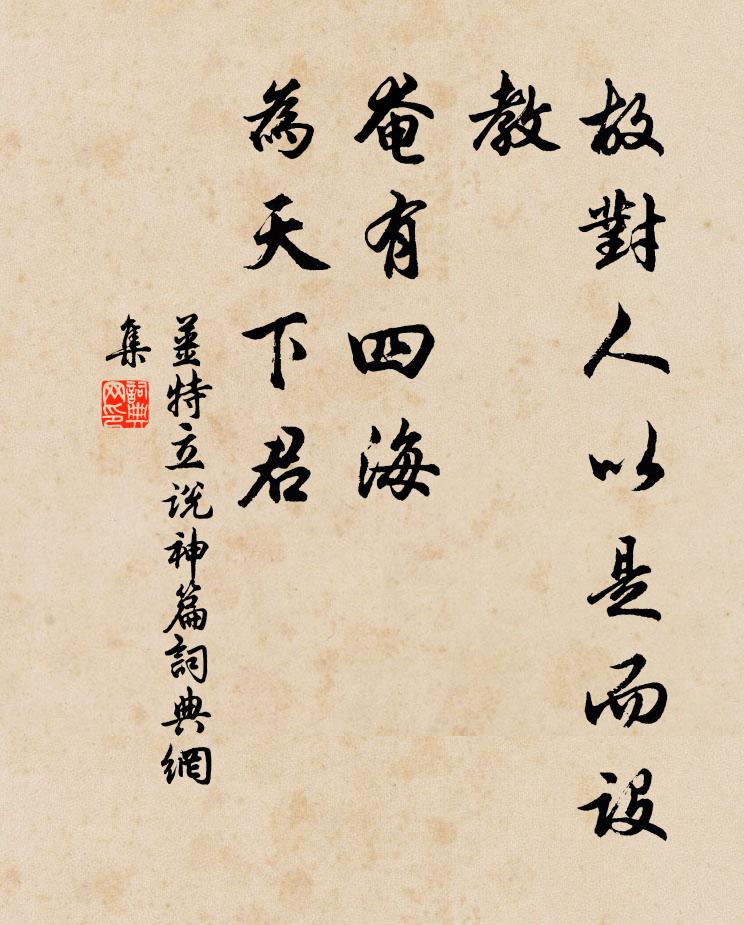 故對人以是而設
教
奄有四海
為天下君
姜特立說神篇詞典網
集
詞典
网印